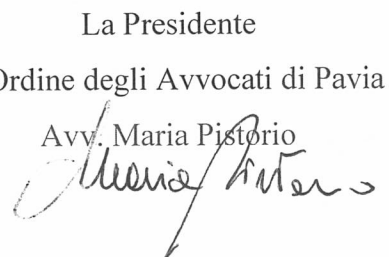 La Presidente
Ordine degli Avvocati di Pavia
Avv. Maria Pistorio
Maria Pistorio